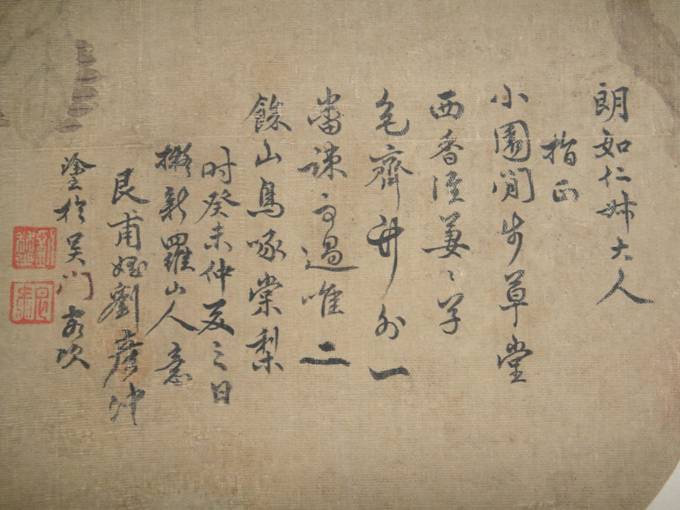 朗如仁姊大人
指正
小園閒步草堂
西香徑萋〻草
色齊井外一
疎雨過唯二
餘山鳥啄棠梨
时癸未仲夏之日
擬新羅山人意
艮甫姪劉彥沖
塗於吳門客次